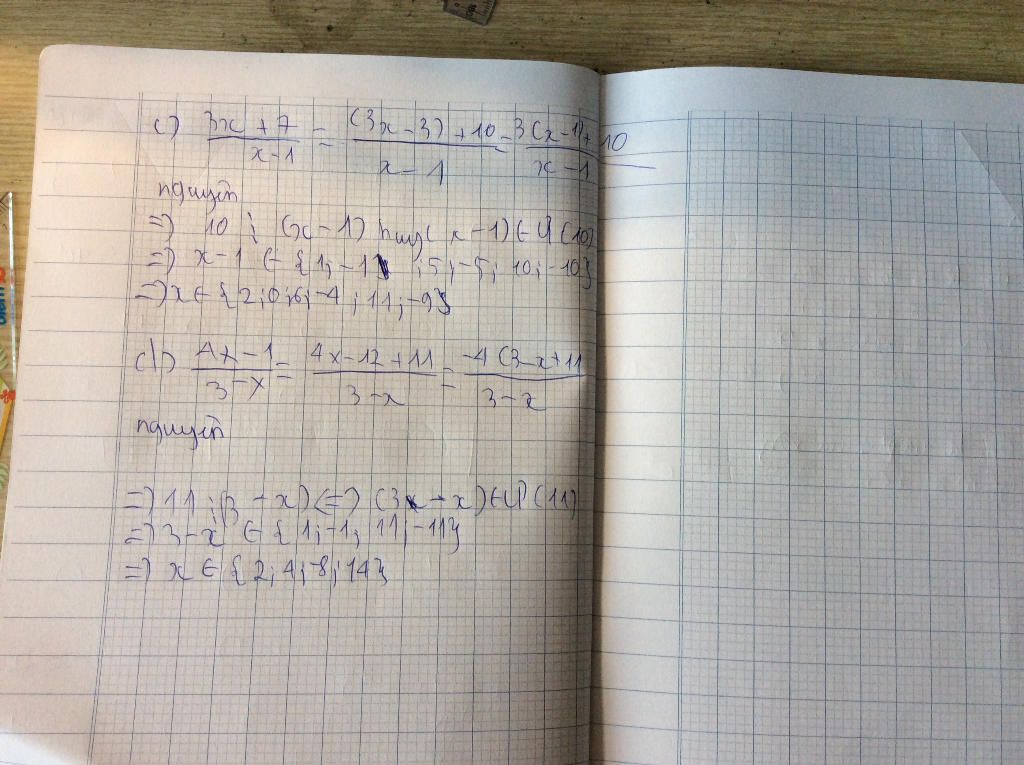 c) 3x + 7 / x-1 = (3x - 3) + 10 / x - 1 = 3(x-1) + 10 / x - 1
nguyên
=) 10 ⋮ (x-1) hay (x-1) ∈ Ư(10)
=) x-1 ∈ {1; -1; 5; -5; 10; -10}
=) x ∈ {2; 0; 6; -4; 11; -9}
d) 4x - 1 / 3 - x = 4x - 12 + 11 / 3 - x = -4(3 - x + 11 / 3 - x
nguyên
=) 11 ⋮ (3 - x) <=) (3 - x) ∈ Ư(11)
=) 3 - x ∈ {1; -1; 11; -11}
=) x ∈ {2; 4; -8; 14}